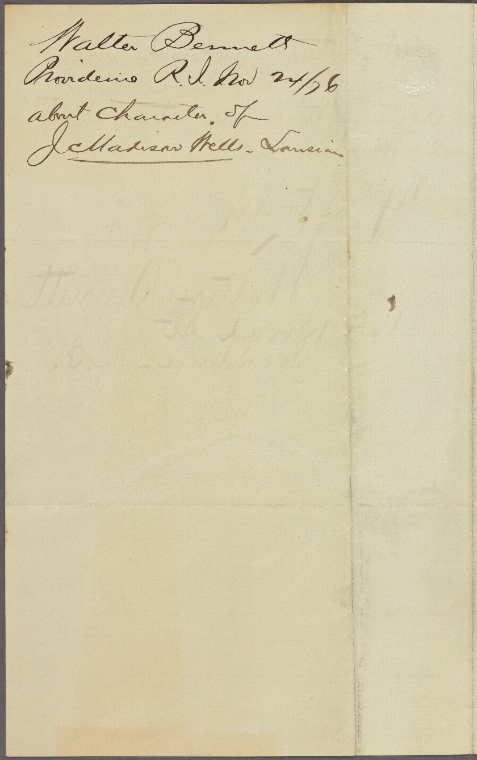 Walter Bennett
Providence R.I. Nov 24/76
about Character. of
J. Madison Wells - Louisian